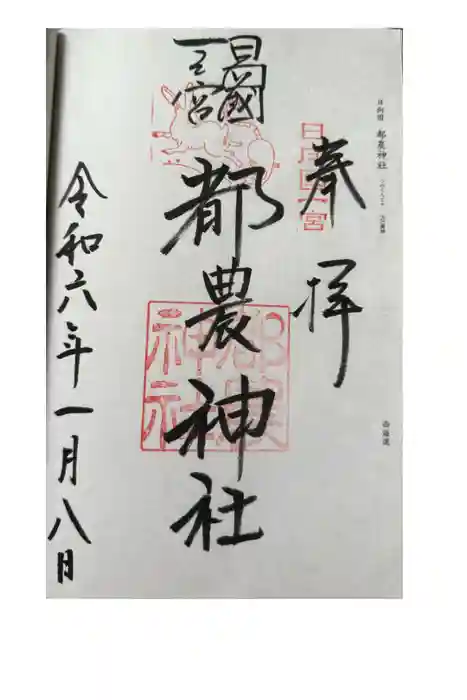 日向国 都農神社
西海道
奉拝
日向国一宮
日向国
一之宮
都農神社
都農神社
令和六年一月八日